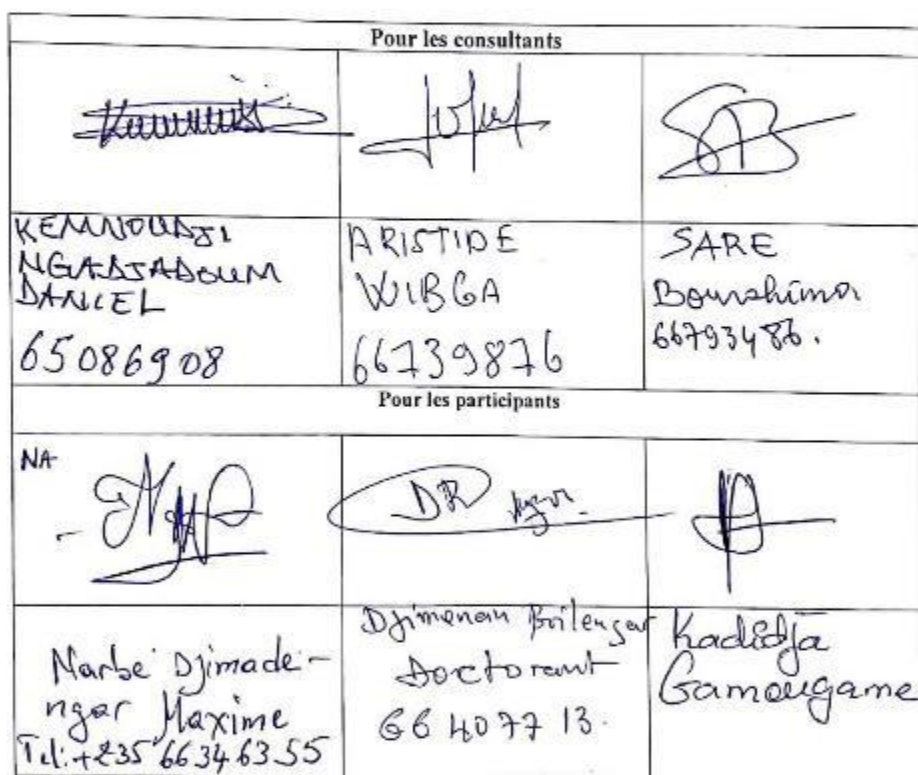 Pour les consultants
KEMNOUDJI
NGADJADOUM
DANIEL
65086908
ARISTIDE
WIBGA
66739876
SARE
Bourahima
66793486.
Pour les participants
NA
DR
Narbé Djimade-
ngar Maxime
Tel: +235 66346355
Djimenan
Doctorant
66 40 77 13.
Kadidja
Gamougame